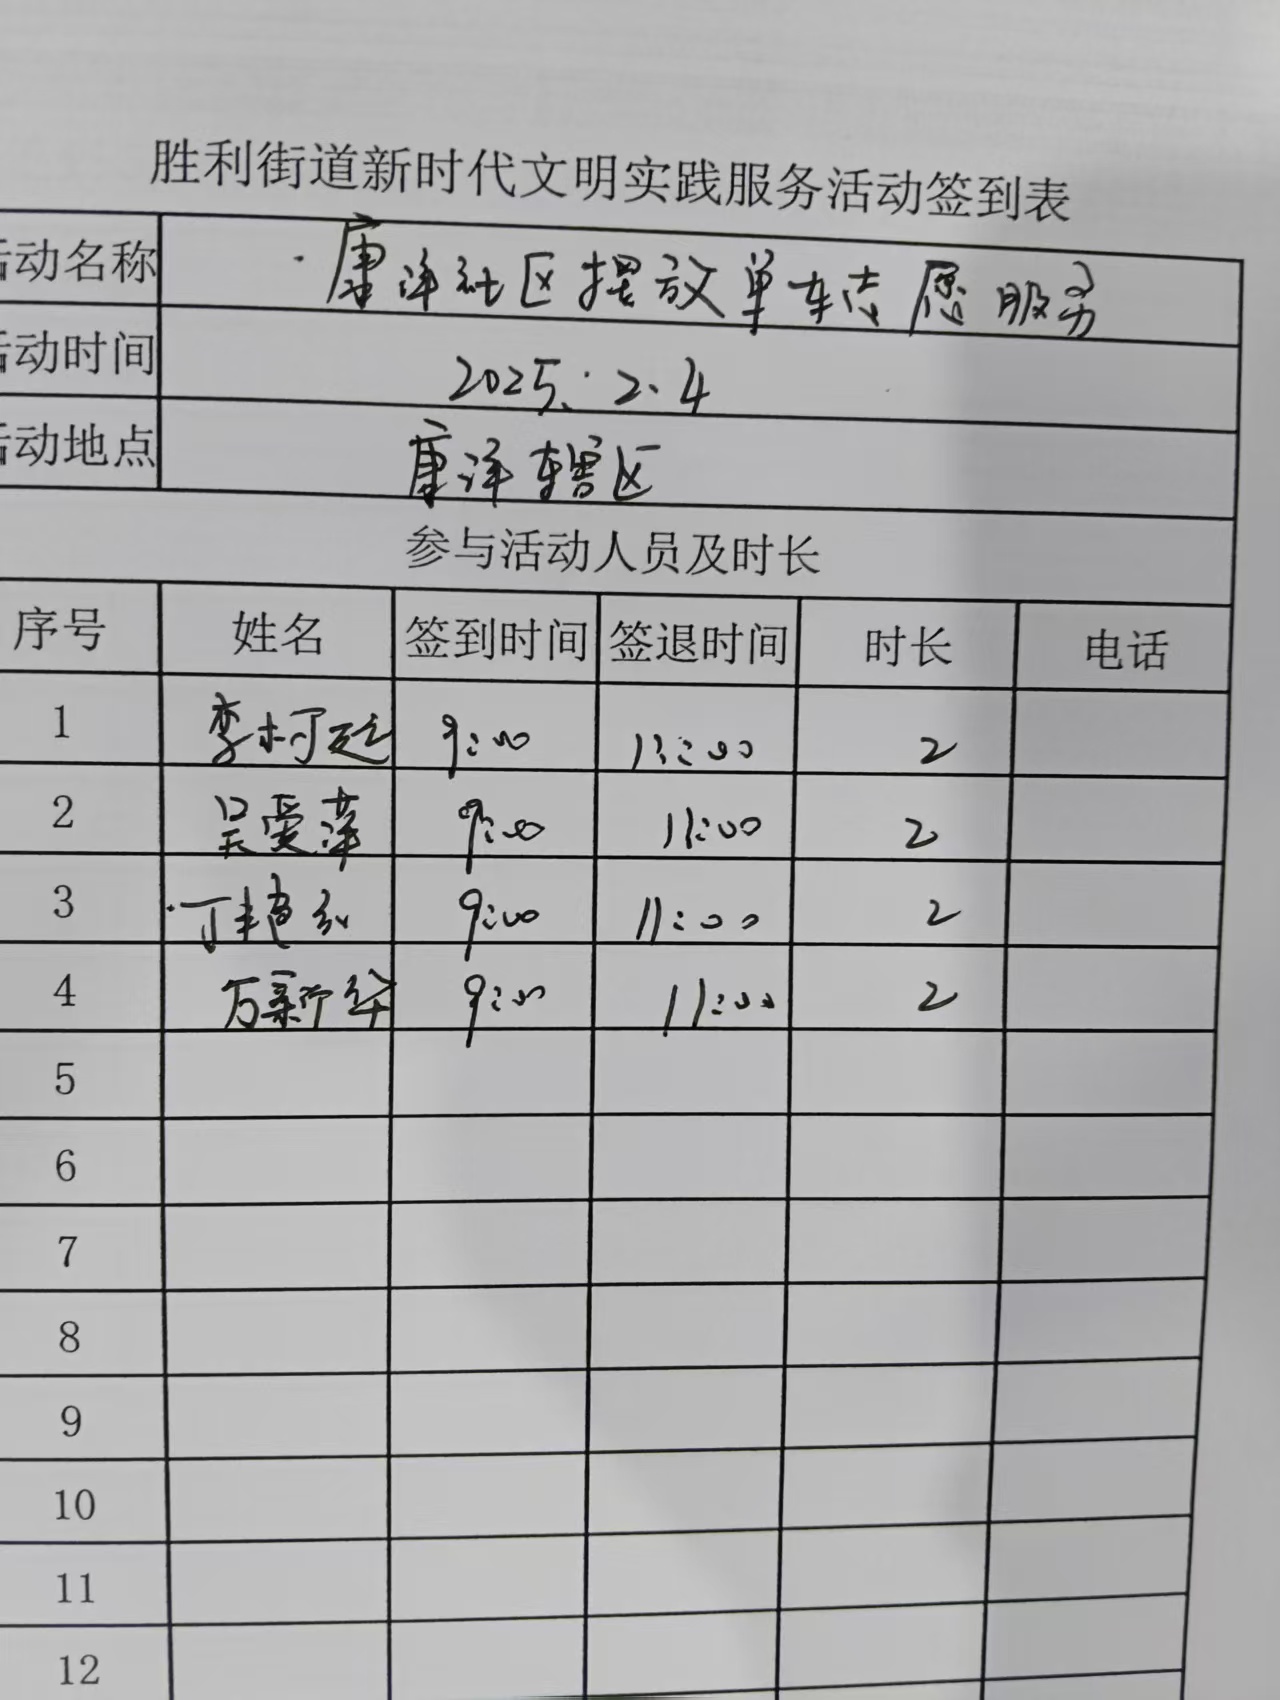 胜利街道新时代文明实践服务活动签到表
活动名称 康洋社区摆放单车志愿服务
活动时间 2025.2.4
活动地点 康洋辖区
参与活动人员及时长
序号 姓名 签到时间 签退时间 时长 电话
1 李柯廷 9:00 11:00 2
2 吴爱萍 9:00 11:00 2
3 丁艳红 9:00 11:00 2
4 万新华 9:00 11:00 2
5
6
7
8
9
10
11
12